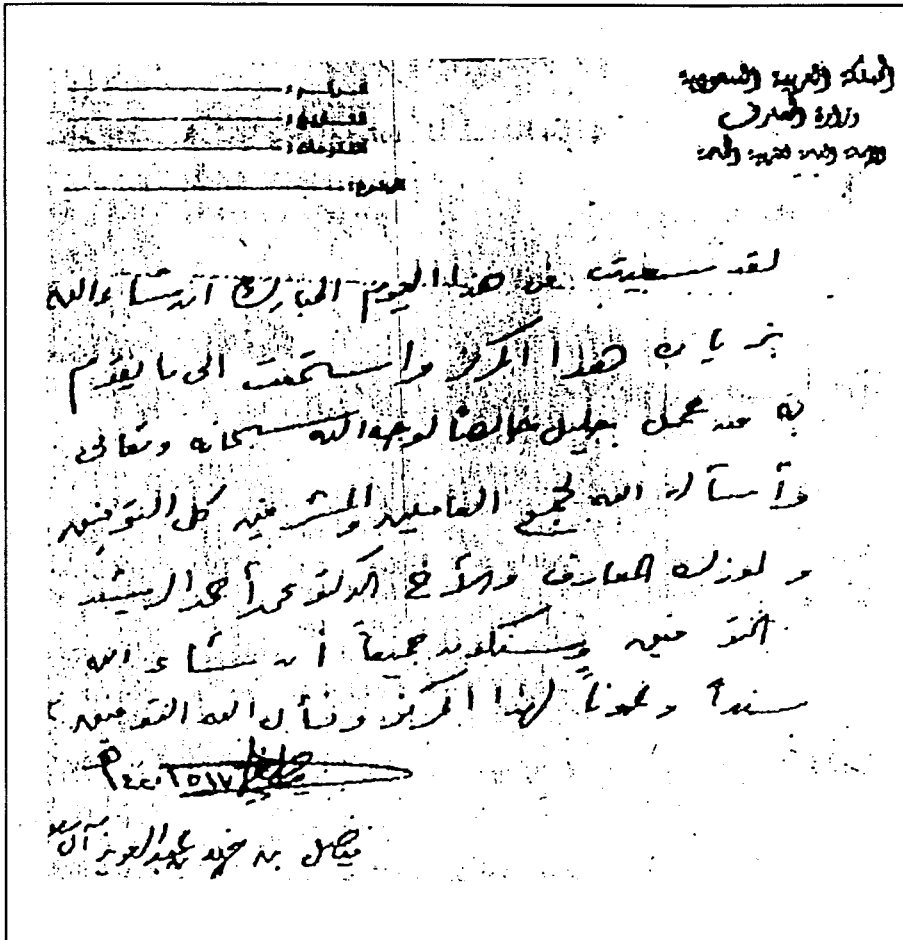 المملكة العربية السعودية
وزارة المعارف
الرقم :
التاريخ :
المرفقات :
لقد سعدت في هذا اليوم المبارك ان شاء الله
بزيارة هذا المركز واستمعت الى ما يقوم
به من عمل جليل خالصاً لوجه الله سبحانه وتعالى
وأسأل الله لجميع العاملين والمشرفين كل التوفيق
ولوزارة المعارف والأخ الدكتور محمد أحمد الرشيد
التوفيق وسنكون جميعاً أن شاء الله
سنداً وعوناً لهذا المركز ونسأل الله التوفيق
فيصل بن فهد بن عبدالعزيز آل سعود